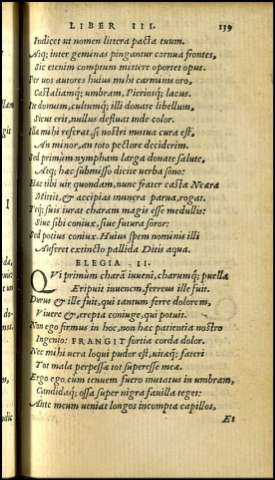 LIBER III. 139
Indicet ut nomen littera pacta tuum.
Atq; inter geminas pingantur cornua frontes,
Sic etenim comptum mittere oportet opus.
Per uos autores huius mihi carminis oro,
Castaliamq; umbram, Pieriosq; lacus.
Ite domum, cultumq; illi donate libellum,
Sicut erit, nullus defluat inde color.
Illa mihi referat, si nostri mutua cura est,
An minor, an toto pectore deciderim.
Sed primum nympham larga donate salute,
Atq; hæc submisso dicite uerba sono:
Hæc tibi uir quondam, nunc frater casta Neæra
Mittit, & accipias munera parua, rogat.
Teq; suis iurat charam magis esse medullis:
Siue sibi coniux, siue futura soror:
Sed potius coniux. Huius spem nominis illi
Auferet extincto pallida Ditis aqua.
ELEGIA II.
QVi primum charā iuueni, charumq; puellæ
Eripuit iuuenem, ferreus ille fuit.
Durus & ille fuit, qui tantum ferre dolorem,
Viuere & erepta coniuge, qui potuit.
Non ego firmus in hoc, non hæc patientia nostro
Ingenio: FRANGIT fortia corda dolor.
Nec mihi uera loqui pudor est, uitæq; fateri
Tot mala perpessæ tot superesse meæ.
Ergo ego cum tenuem fuero mutatus in umbram,
Candidaq; ossa super nigra fauilla teget:
Ante meum ueniat longos incompta capillos,
Et